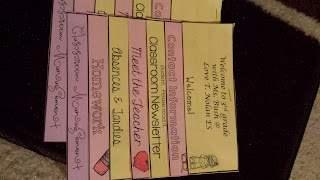 Welcome to 3rd grade
with Ms. Bush @
Love T. Nolan ES
Welcome!
Contact Information
Classroom Newsletter
Meet the Teacher
Absences & Tardies
Homework
Classroom Management
Classroom Management